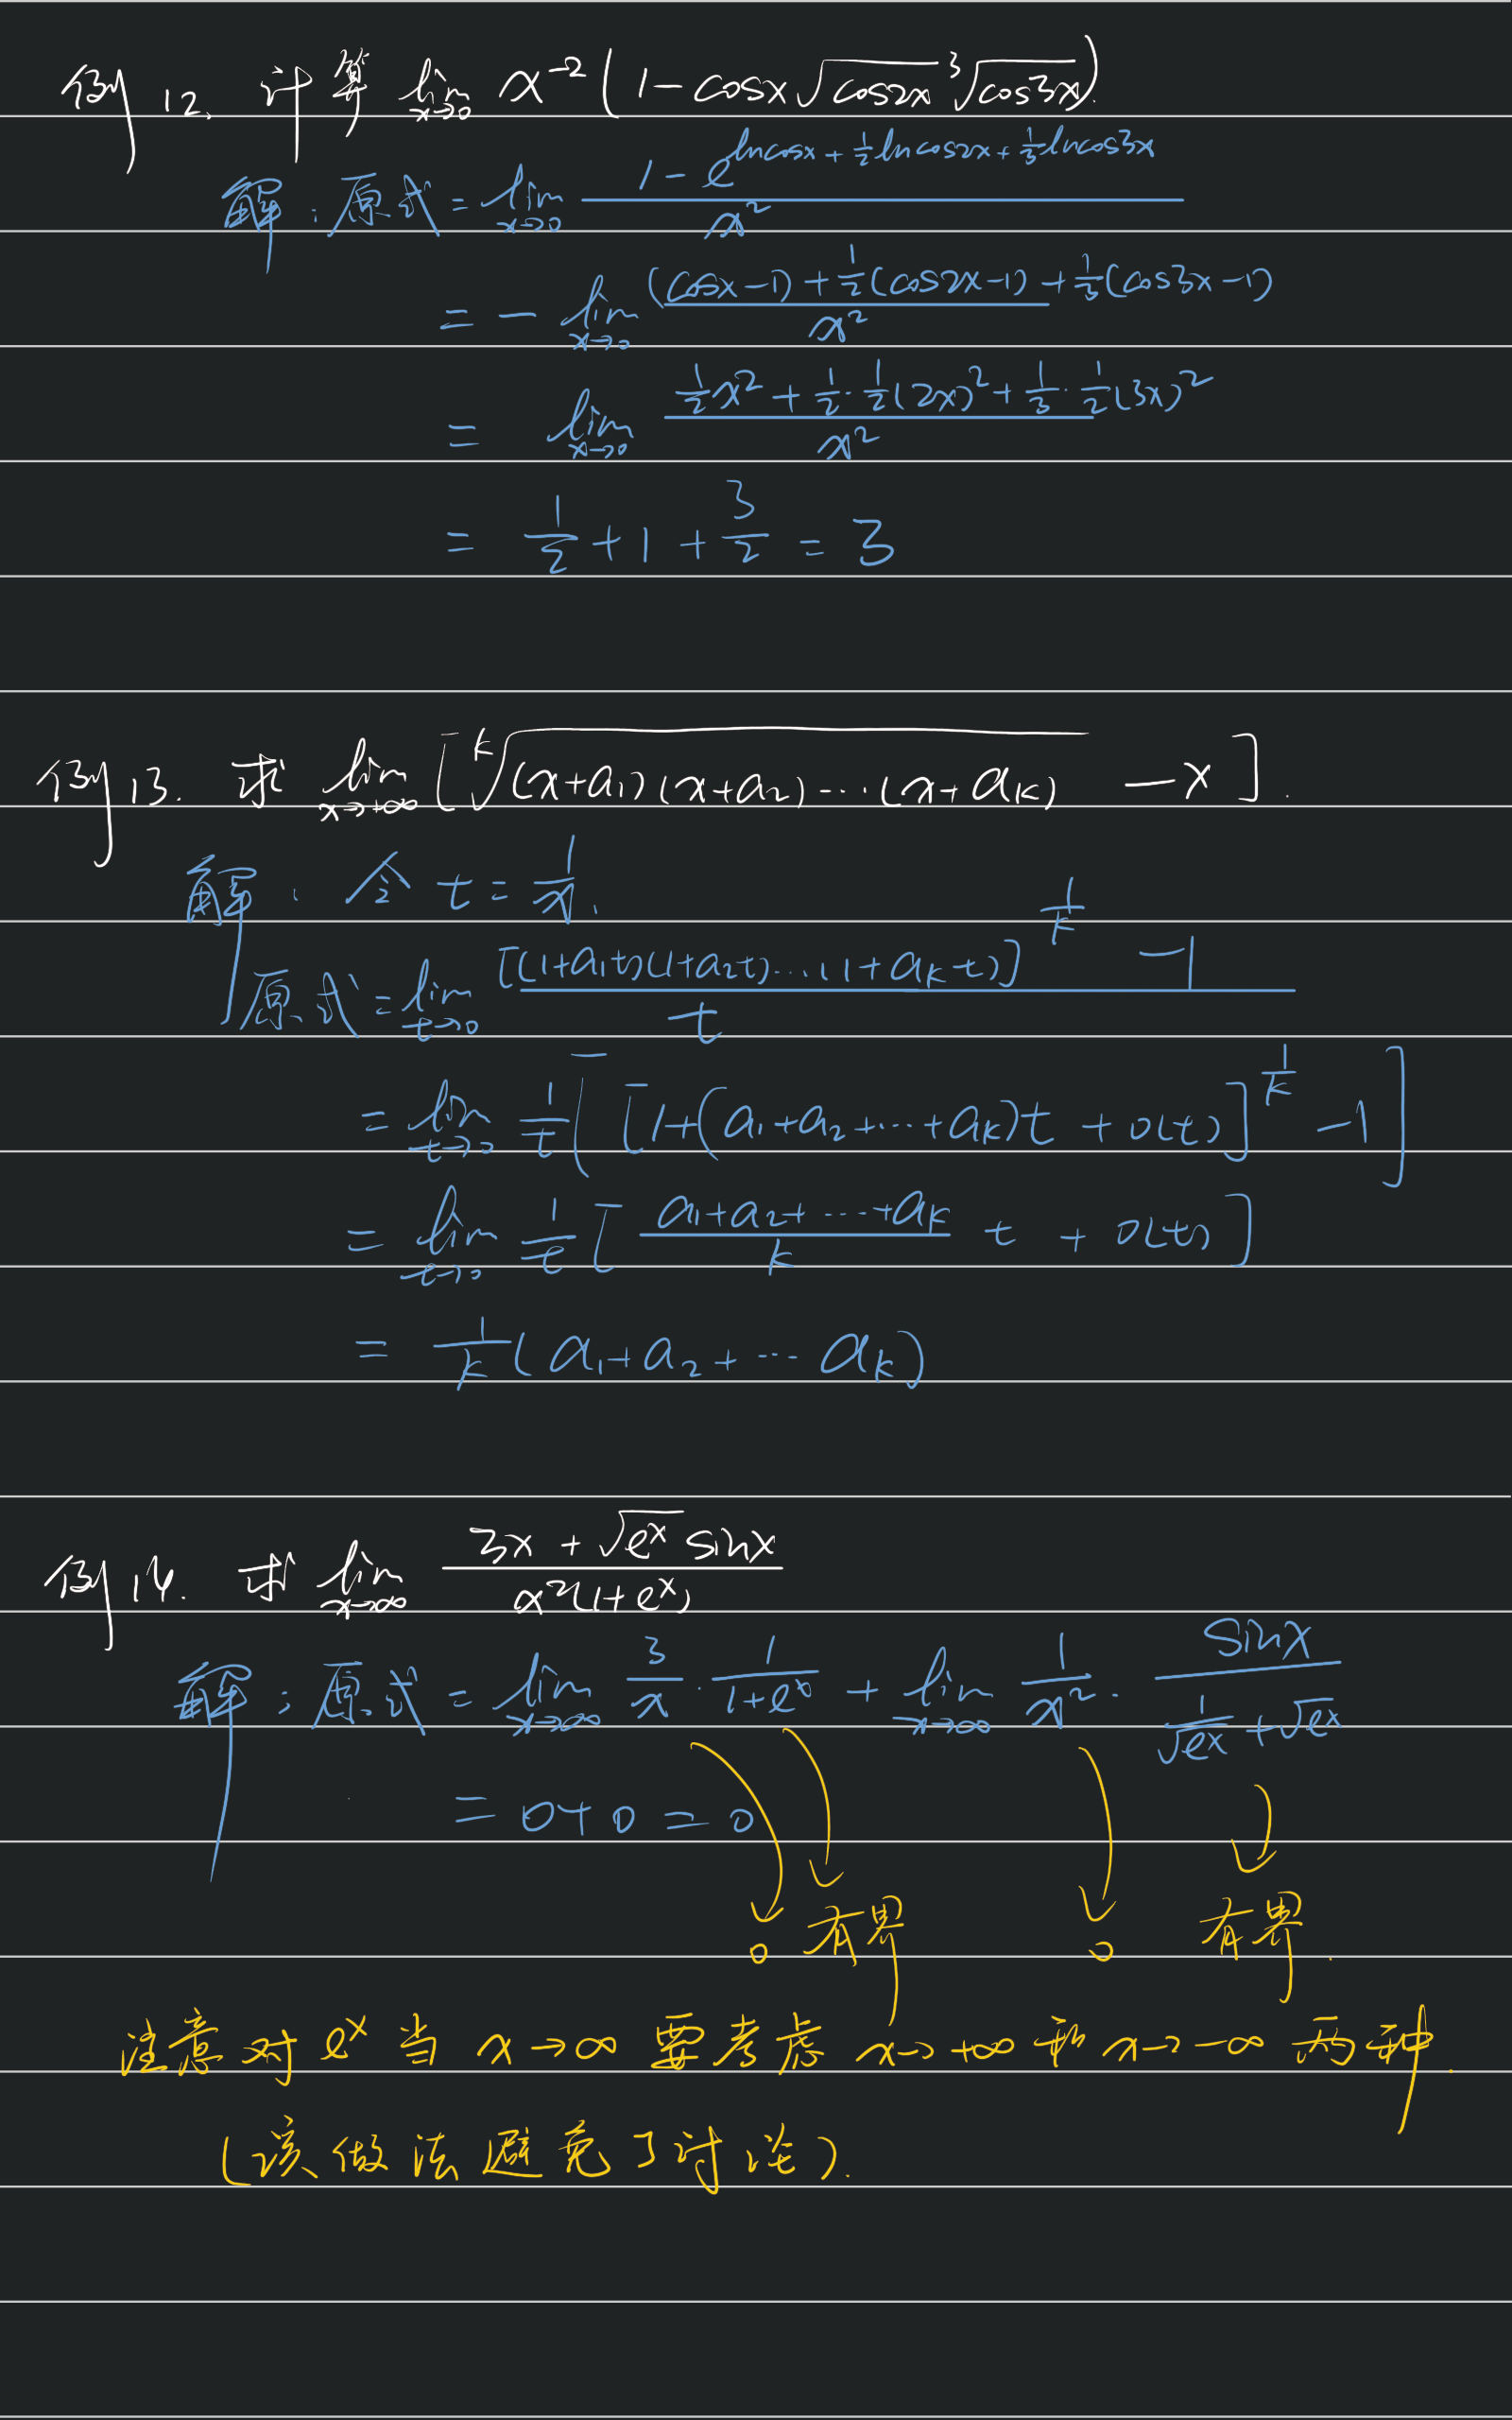 例12. 计算 lim_{x→0} x^{-2}(1-cosx√(cos2x) ∛(cos3x)).
解:原式 = lim_{x→0} (1-e^{lncosx+½lncos2x+⅓lncos3x})/x²
= - lim_{x→0} ((cosx-1)+½(cos2x-1)+⅓(cos3x-1))/x²
= lim_{x→0} (½x²+½·½(2x)²+⅓·½(3x)²)/x²
= 1/2+1+3/2=3
例13. 求 lim_{x→+∞} [ᵏ√((x+a₁)(x+a₂)…(x+aₖ)) -x].
解:令 t=1/x.
原式 = lim_{t→0} ([(1+a₁t)(1+a₂t)…(1+aₖt)]^{1/k} -1)/t
= lim_{t→0} 1/t [[1+(a₁+a₂+…+aₖ)t+o(t)]^{1/k} -1]
= lim_{t→0} 1/t [(a₁+a₂+…+aₖ)/k t + o(t)]
= 1/k(a₁+a₂+…aₖ)
例14. 求 lim_{x→∞} (3x+√(eˣ) sinx)/(x²(1+eˣ))
解:原式 = lim_{x→∞} 3/x · 1/(1+eˣ) + lim_{x→∞} 1/x² · sinx/(1/√(eˣ)+√(eˣ))
=0+0=0
0 有界 0 有界.
注意对eˣ当 x→∞ 要考虑 x→+∞ 和 x→-∞ 两种.
(该做法避免了讨论).